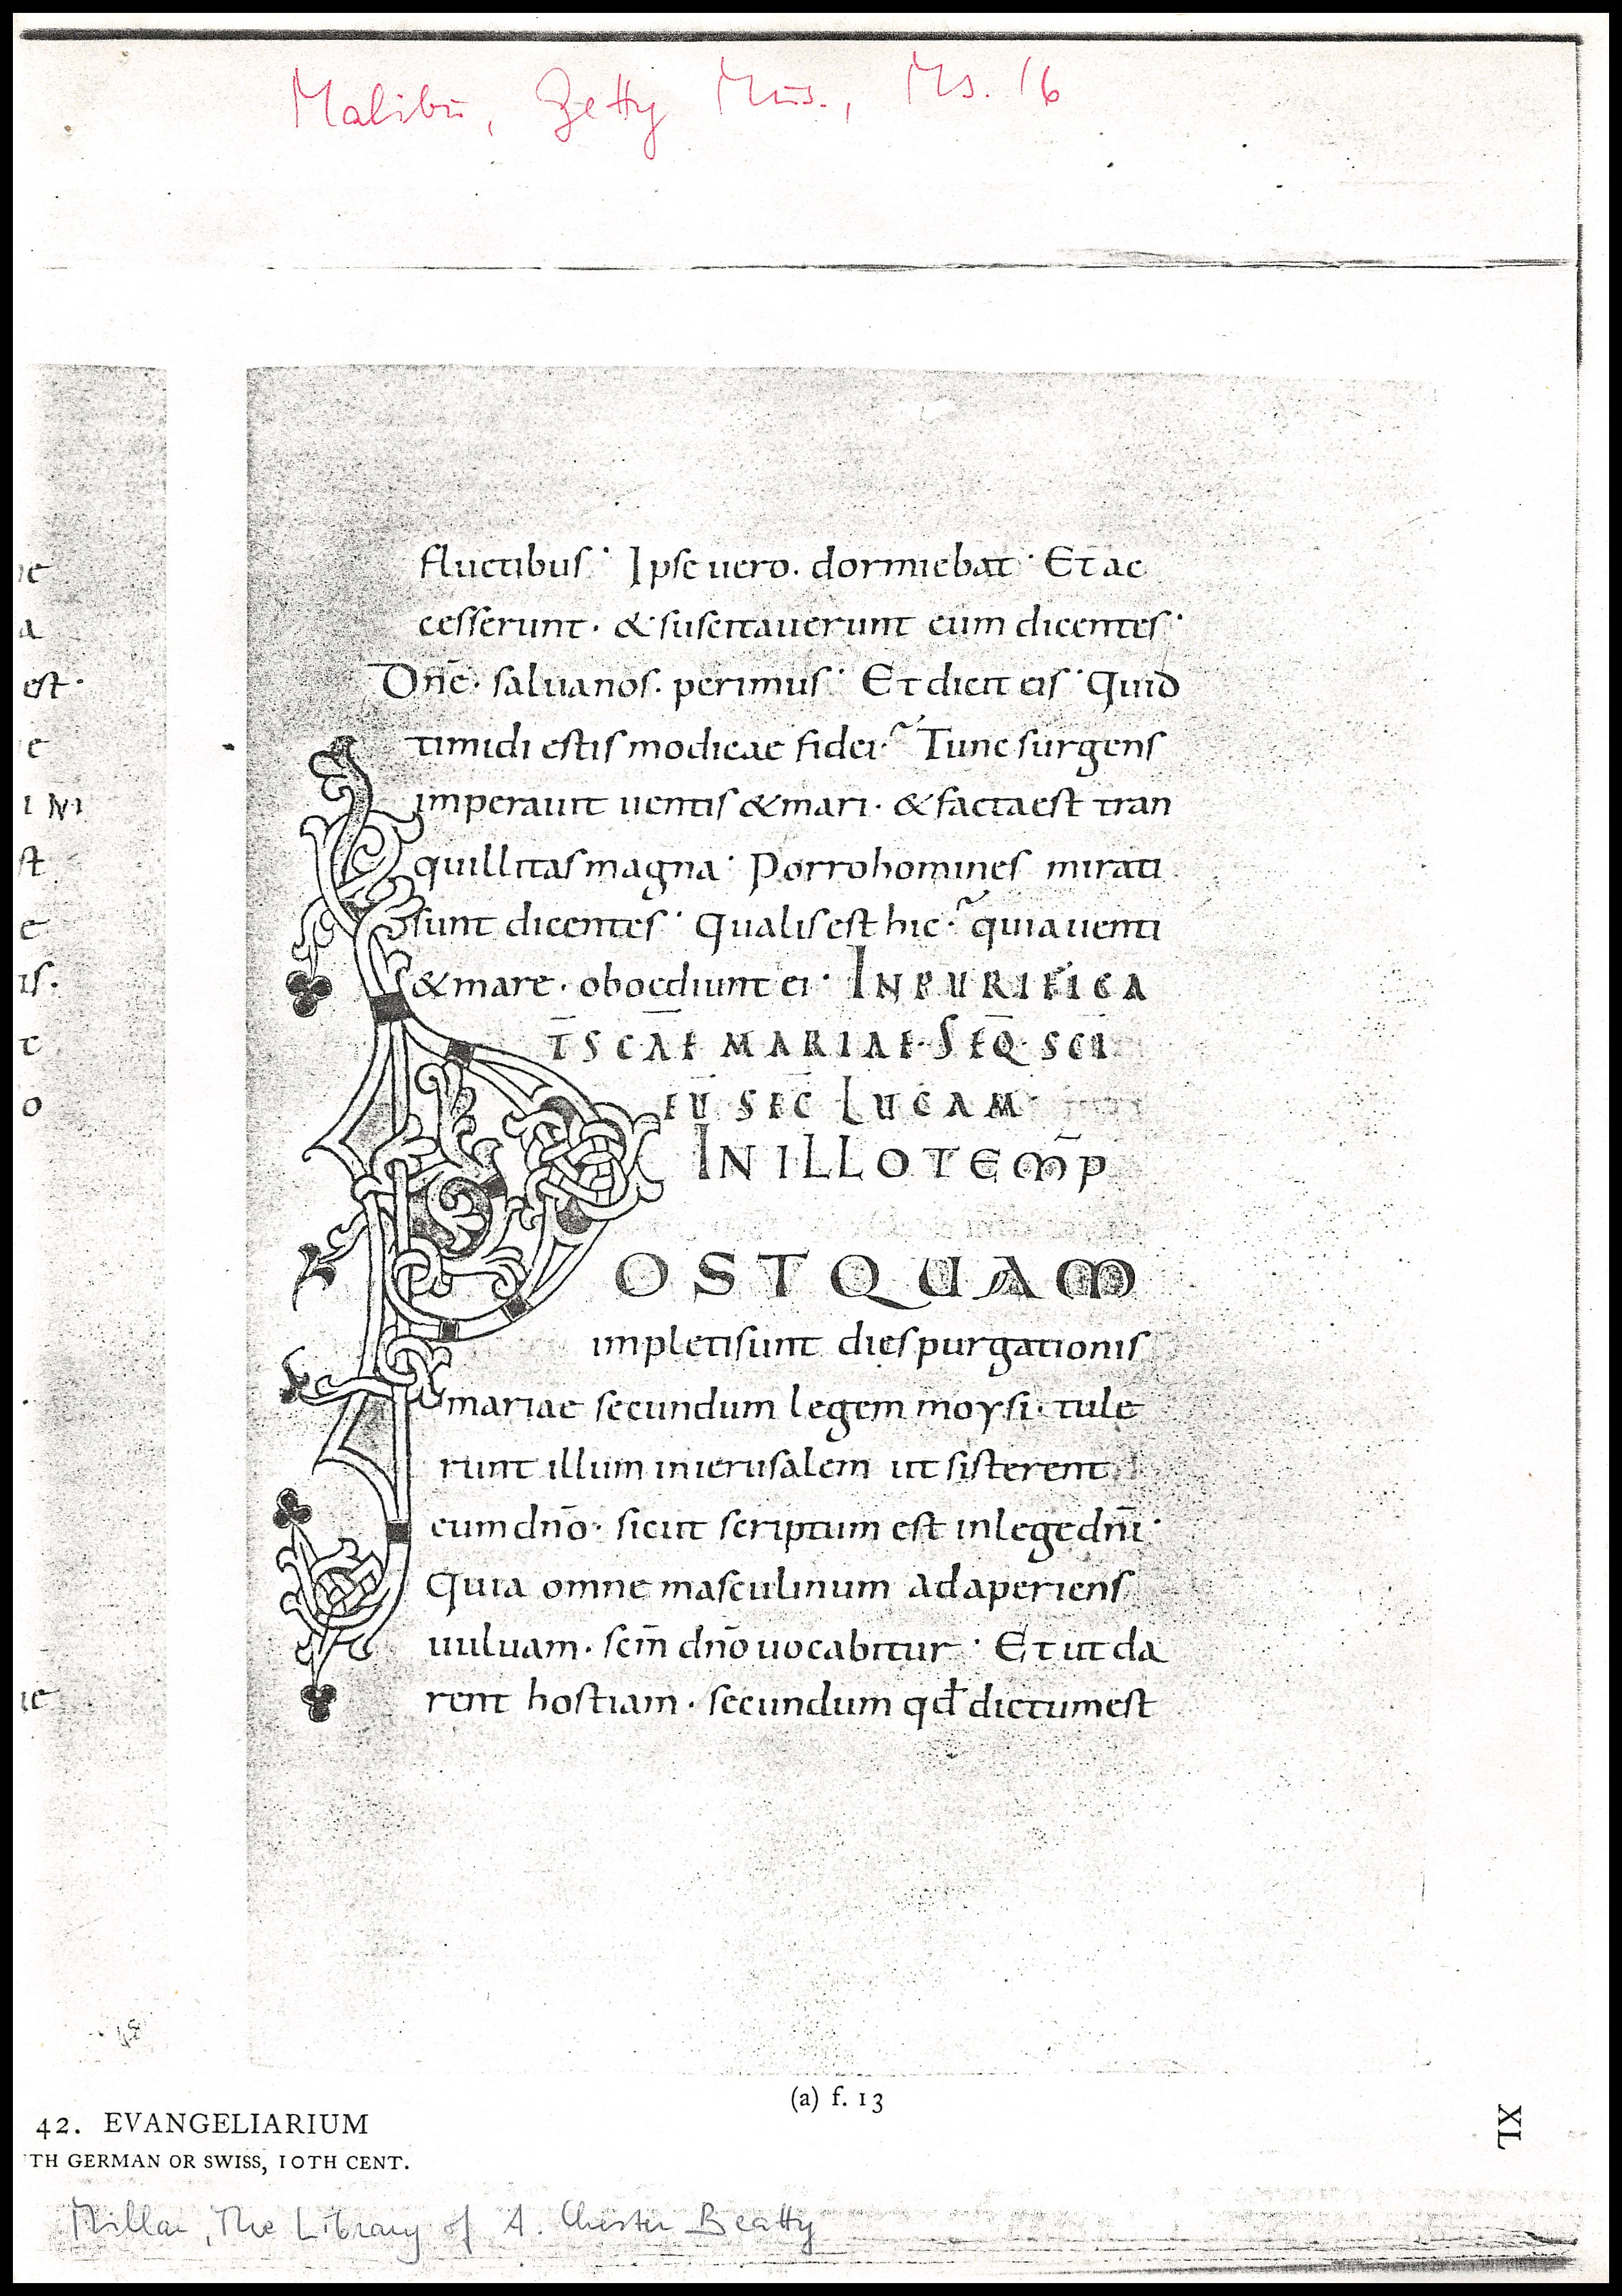 Malibu, Getty Mus., Ms. 16
fluctibus· Ipse uero· dormiebat· Et ac
cesserunt· & suscitauerunt eum dicentes·
Dn̄e· salua nos· perimus· Et dicit eis· Quid
timidi estis modicae fidei· Tunc surgens
imperauit uentis & mari· & facta est tran
quillitas magna· Porro homines mirati
sunt dicentes· Qualis est hic· quia uenti
& mare· oboediunt ei· IN PURIFICA
T̄ SCĀE MARIAE· SEQ̄ SCI
EU SEC̄ LUCAM
IN ILLO TEMP̄
OSTQUAM
impleti sunt dies purgationis
mariae secundum legem moysi· tule
runt illum in ierusalem ut sisterent
eum dn̄o· sicut scriptum est in lege dn̄i·
Quia omne masculinum adaperiens
uuluam· scm̄ dn̄o uocabitur· Et ut da
rent hostiam· secundum qđ dictum est
ne
a
est·
e
st
e
is·
c
o
ie
(a) f. 13
42. EVANGELIARIUM
TH GERMAN OR SWISS, 10TH CENT.
XL
Millar, The Library of A. Chester Beatty